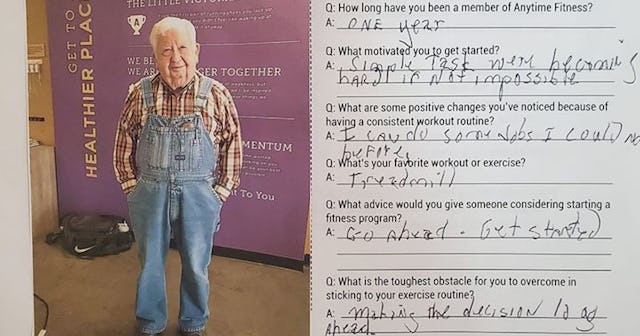 THE LITTLE VICTORIE
GET TO
HEALTHIER PLAC
A
WE BE
WE AR GER TOGETHER
MENTUM
t To You
Q: How long have you been a member of Anytime Fitness?
A: ONE year
Q: What motivated you to get started?
A: Simple Task were becoming
hard if not impossible
Q: What are some positive changes you've noticed because of
having a consistent workout routine?
A: I can do some Jobs I could no
before,
Q: What's your favorite workout or exercise?
A: Treadmill
Q: What advice would you give someone considering starting a
fitness program?
A: Go ahead. Get started
Q: What is the toughest obstacle for you to overcome in
sticking to your exercise routine?
A: making the decision to go
ahead.